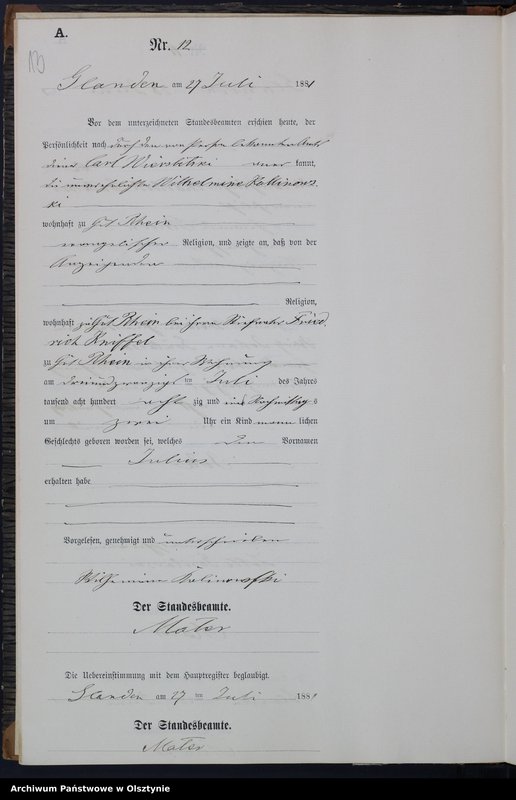 A.
Nr. 12
13
Glanden am 27 Juli 1881
Vor dem unterzeichneten Standesbeamten erschien heute, der
Persönlichkeit nach durch den von Person bekannten Amts
diener Carl Wierslitzki aner kannt,
die unverehelichte Wilhelmine Kallinows
ki
wohnhaft zu Gut Rhein
evangelischer Religion, und zeigte an, daß von der
Anzeigenden
Religion,
wohnhaft zu Gut Rhein bei ihrem Fried
rich Kniffel
zu Gut Rhein in ihrer Wohnung
am dreiundzwanzigsten Juli des Jahres
tausend acht hundert acht zig und eins Nachmittags
um zwei Uhr ein Kind männ lichen
Geschlechts geboren worden sei, welches den Vornamen
Julius
erhalten habe
Vorgelesen, genehmigt und unterschrieben
Wilhelmine Kalinowski
Der Standesbeamte.
Mater
Die Uebereinstimmung mit dem Hauptregister beglaubigt.
Glanden am 27 ten Juli 1881
Der Standesbeamte.
Mater
Archiwum Państwowe w Olsztynie